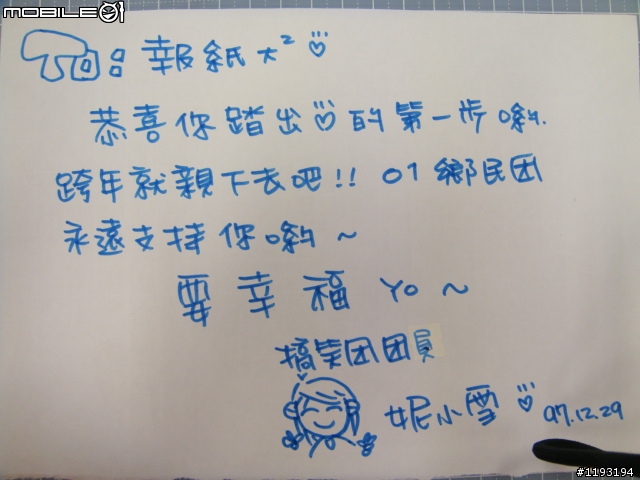 MOBILE01
TO: 報紙大²♡
恭喜你踏出♡的第一步喲.
跨年就親下去吧!! 01鄉民团
永遠支持你喲~
要幸福 YO ~
搞笑团团員
妮小雪♡ 97.12.29
#1193194